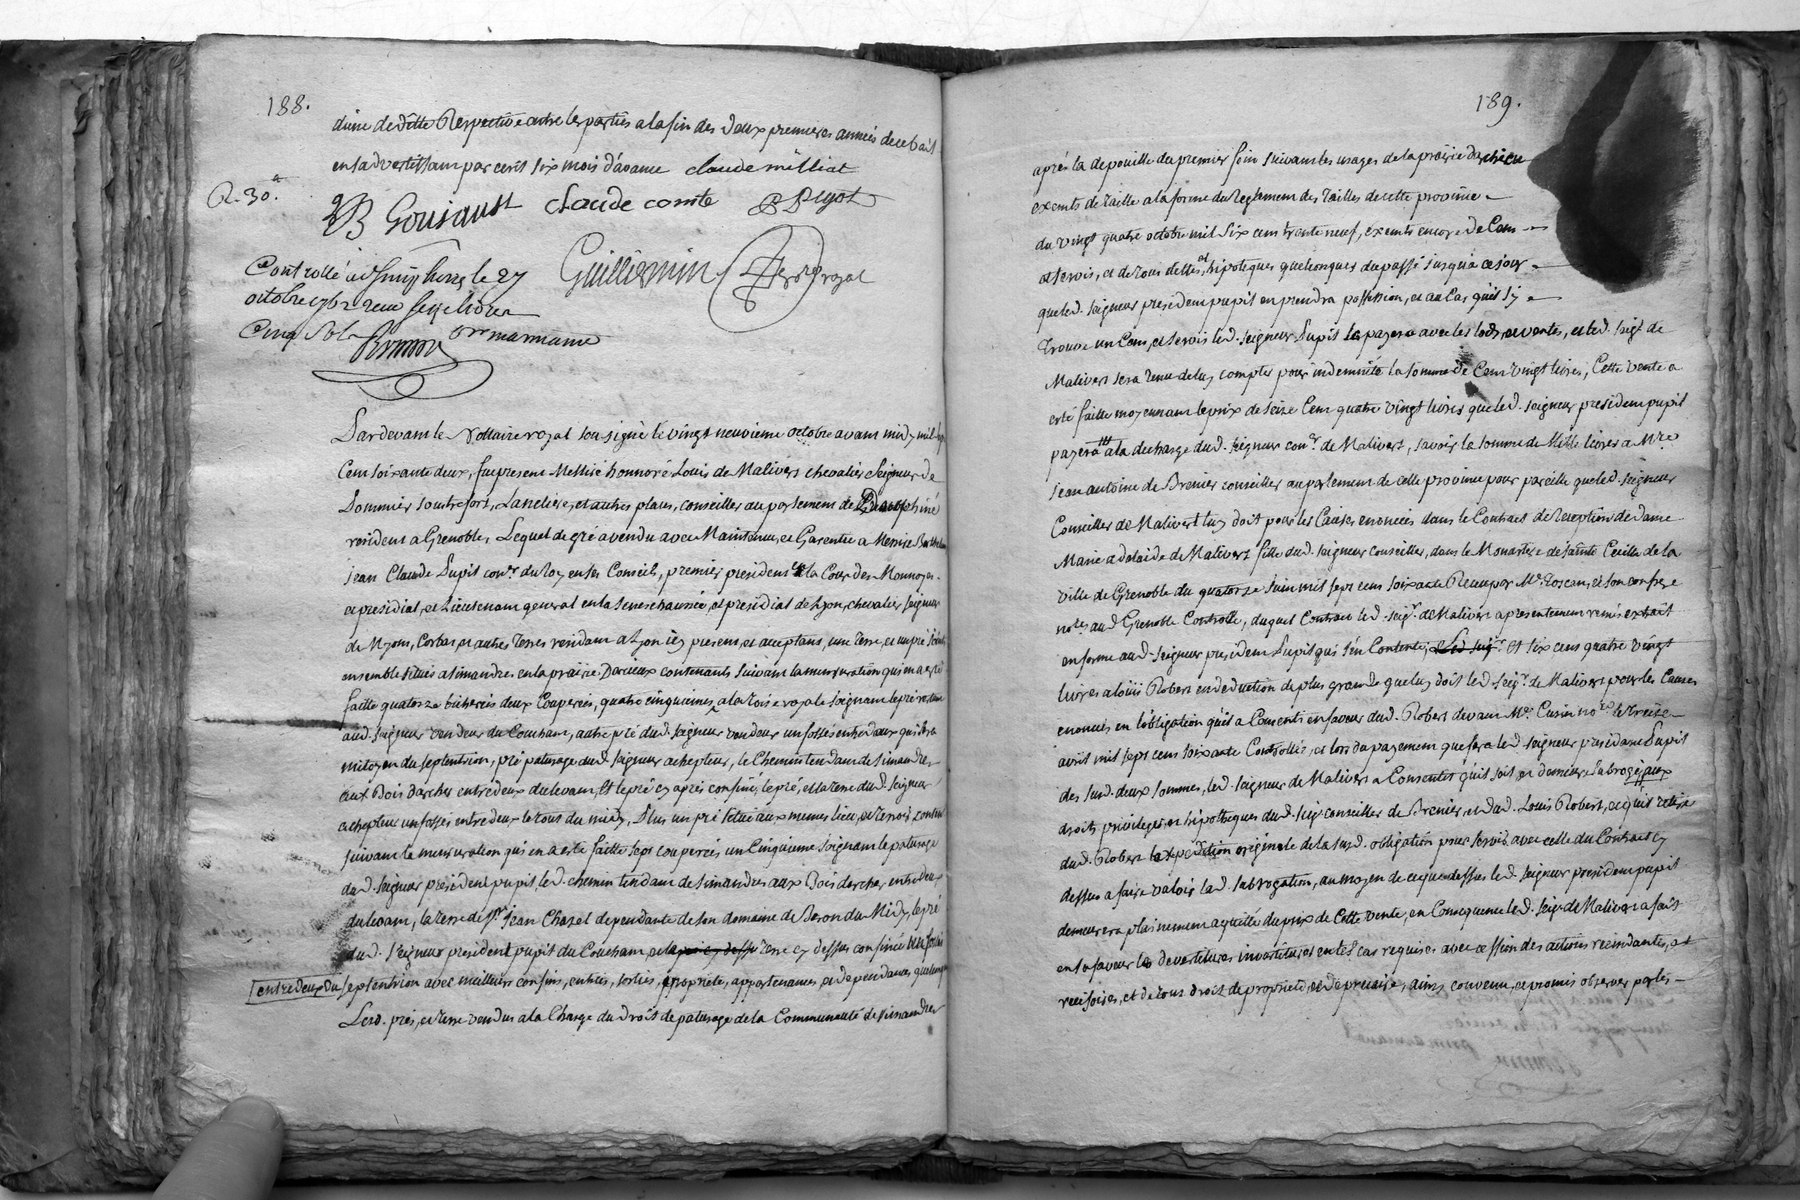 188.
d'une de ditte Respective entre les parties a la fin des deux premieres années de ce bait
en sadvertissam par ecrit six mois d'avance claude milliat
R. 30.
claude comte
Guillermin
royal
Controllé a le 27
octobre 1762 recu seize livres
Cinq Sols
Pardevant le Nottaire royal soussigné le vingt neuvieme octobre avant midy mil sept
Cent soixante deux, fut present Messire honnoré Louis de Malivert chevalier Seigneur de
conseiller au parlement de Dauphiné
resident a Grenoble, Lequel de gré a vendu avec Maintenue, et Garentie a Messire
jean Claude Pupil conr. du roy en ses Conseils, premier president la Cour des Monnoyes
et presidial, et Lieutenant general en la Seneschaussée, et presidial de Lyon, chevalier seigneur
de Myons, Corbas et autres Terres residant a Lyon icy present, et acceptant, une Terre, et un pré
ensemble situés a Simandres en la prairie Darcieux contenants suivant la mensuration qui en a esté
faitte quatorze bicherées deux Couperées, quatre cinquiemes, a la toise royale Joignant le pré restant
aud. Seigneur vendeur du Couchant, autre pré dud. Seigneur vendeur un fossé entredeux qui sera
mitoyen du septentrion, pré paturage dud. Seigneur achepteur, le Chemin tendant de Simandres
aux Bois darcher entredeux du levant, Et le pré cy après confiné, le pré, et la terre dud. Seigneur
achepteur un fossé entredeux le tout du midy, Plus un pré situé aux memes lieu, et Terroir, contenant
suivant la mensuration qui en a esté faitte sept couperées un Cinquieme Joignant le paturage
dud. Seigneur president pupil, led. chemin tendant de Simandres aux Bois darcher entredeux
du levant, la terre de Sr. jean Chazel dependante de son domaine de Beron du Midy, le pré
dud. Seigneur president pupil du Couchant, et la terre cy dessus confinée un fossé
entredeux du septentrion avec meilleurs confins, entrées, sorties, propriété, appartenances et dependances quelconques
Lesd. prés, et Terre vendus a la Charge du droit de paturage de la Communauté de Simandres
189.
aprés la depouille du premier foin suivant les usages de la prairie darcieu
exempts de taille a la forme du Reglement des tailles de cette province
du vingt quatre octobre mil six cent trente neuf, exempts encore de Cens
et servis, et de tous dettes, et hipoteques quelconques du passé jusqu'a ce jour
que led. Seigneur president pupil en prendra possession, et au Cas qu'il s'y
trouve un Cens, et servis led. Seigneur Pupil le payera avec les lods, et ventes, et led. Seigr. de
Malivert sera tenu de luy compter pour indemnité la somme de Cent vingt livres, Cette vente a
esté faitte moyennant le prix de seize Cent quatre vingt livres que led. Seigneur president pupil
payera a la decharge dud. Seigneur conr. de Malivert, savoir la somme de Mille livres a Mre.
jean antoine de Brenier conseiller au parlement de cette province pour pareille que led. Seigneur
Conseiller de Malivert luy doit pour les Causes enoncées dans le Contract de reception de dame
Marie adelaide de Malivert fille dud. Seigneur conseiller, dans le Monastere de sainte Cecille de la
ville de Grenoble du quatorze juin mil sept cent soixante Recu par Me. toscan, et son confrere
nores. aud. Grenoble Controllé, duquel Contract led. Seigr. de Malivert a presentement remis extrait
en forme aud. Seigneur president Pupil qui s'en Contente, Et six cent quatre vingt
livres a Louis Robert en deduction de plus grande que luy doit led. Seigr. de Malivert pour les Causes
enoncées en l'obligation qu'il a Consenti en faveur dud. Robert devant Me. Cusin nore. le treize
avril mil sept cent soixante Controllés, et lors du payement que fera led. Seigneur president Pupil
des susd. deux sommes, led. Seigneur de Malivert a Consenti qu'il soit, et demeure subrogé aux
droits, privileges, et hipotheques dud. Seigr. conseiller de Brenier, et dud. Louis Robert, et qu'il retire
dud. Robert l'expedition originale de la susd. obligation pour servir avec celle du Contract cy
dessus a faire valoir lad. subrogation, au moyen de ce que dessus led. Seigneur president pupil
demeurera plainement acquitté du prix de Cette vente, en Consequence led. Seigr. de Malivert a fait
en sa faveur les devestitures, investitures en tel cas requises avec cession des actions rescindantes, et
rescisoires, et de tous droit de proprieté, et de precaire, ainsi convenu, et promis observer par les